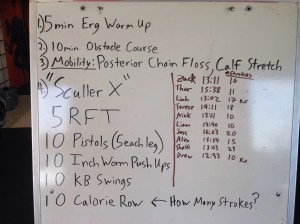 1) 5min Erg Warm Up
2) 10min Obstacle Course
3) Mobility: Posterior Chain Floss, Calf Stretch
4) "Sculler X"
5 RFT
10 Pistols (5each leg)
10 Inch Worm Push Ups
10 KB Swings
10 Calorie Row ← How Many Strokes?
Zack 13:11 10
Thor 15:38 11
Liah 13:02 17
14:11 18
Nick 13:41 10
Liam 13:40 10
Jess 16:03 20
Alex 13:54 15
13:03 23
Drew 12:33 10